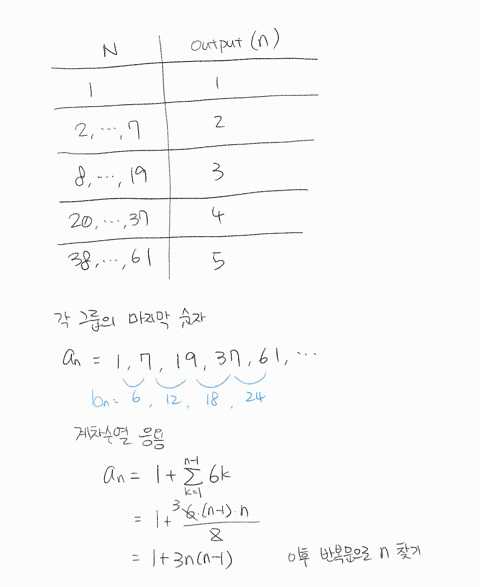 N Output (n)
1 1
2, ⋯, 7 2
8, ⋯, 19 3
20, ⋯, 37 4
38, ⋯, 61 5
각 그룹의 마지막 숫자
aₙ = 1, 7, 19, 37, 61, ⋯
bₙ = 6, 12, 18, 24
계차수열 응용
aₙ = 1 + ∑_{k=1}^{n-1} 6k
= 1 + 3 6·(n-1)·n / 2
= 1 + 3n(n-1) 이후 반복문으로 n 찾기